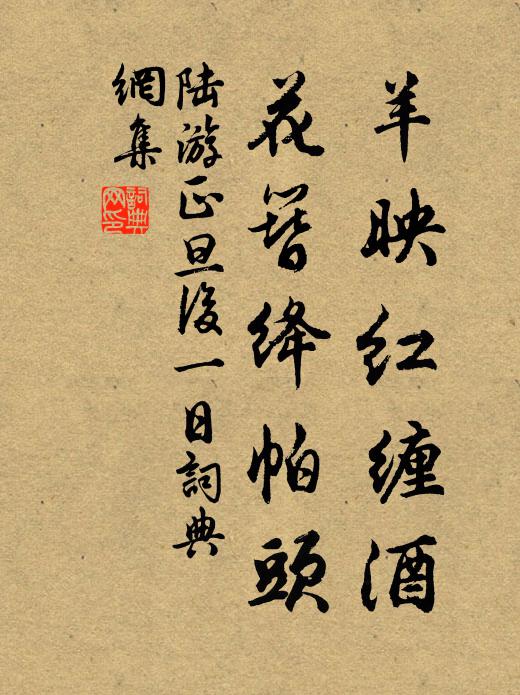 羊映红缠酒
花簪绛帕頭
陆游正旦後一日詞典
網集
詞典
网印